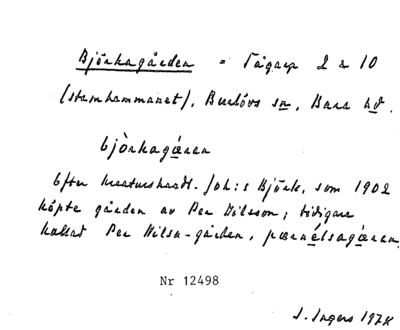 Björkagården = Tågarp 2 & 10
(stamhemmanet), Burlövs sn, Bara hd.
bjòrkagæ̲ren
Efter kreaturshandl. Joh:s Björk, som 1902
köpte gården av Per Nilsson; tidigare
kallat Per Nilsa-gården, pærnélsagæ̲ren.
Nr 12498
I. Ingers 197